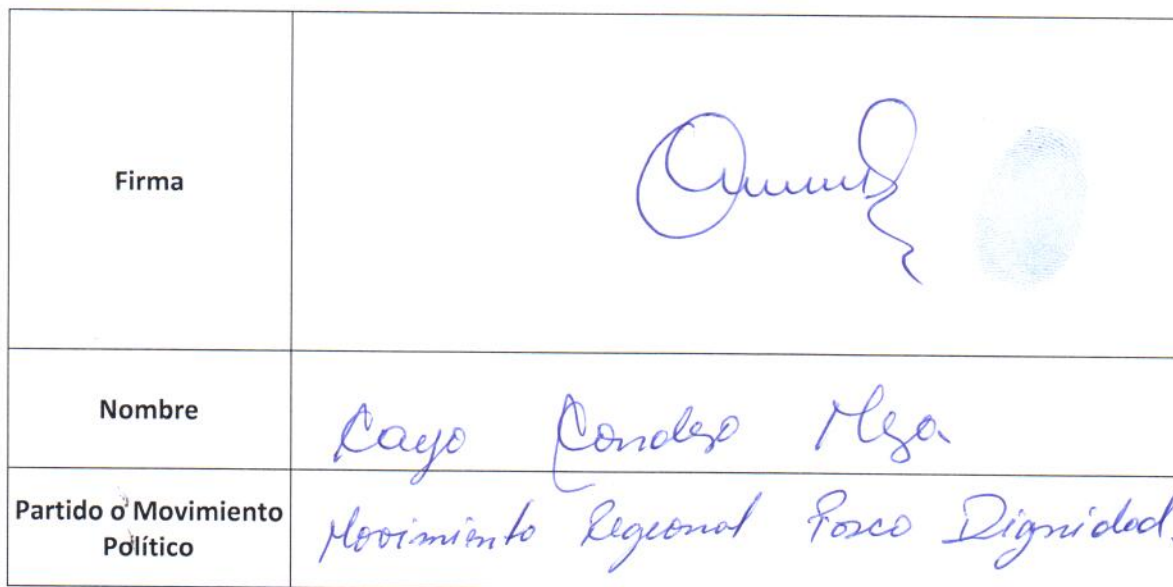 Firma
Nombre
Cayo Condezo Meza
Partido o Movimiento
Político
Movimiento Regional Pasco Dignidad.